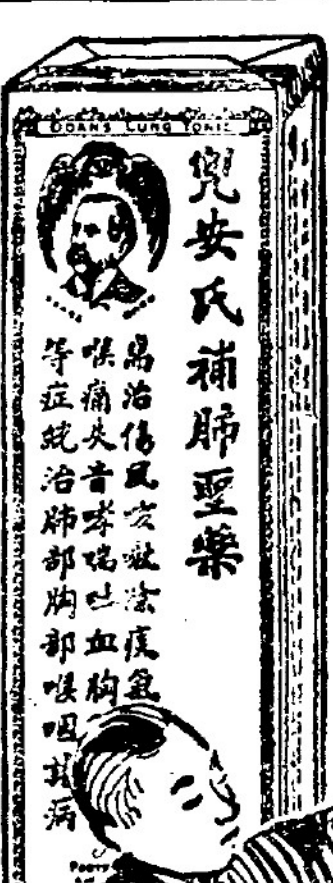 DOAN'S LUNG TONIC
兜安氏補肺聖藥
耑治傷風咳嗽除痰氣
喉痛失音哮喘吐血胸
等症統治肺部胸部喉咽諸病